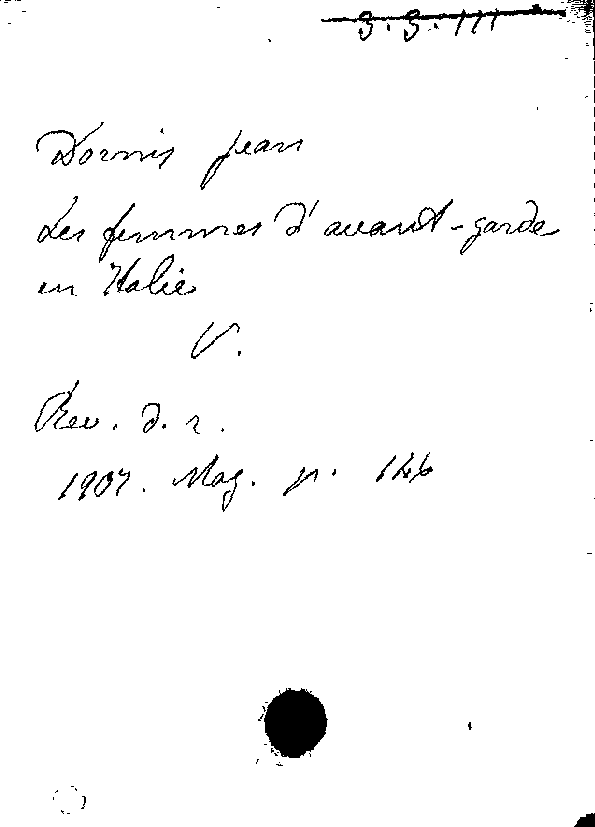 3.3.111
Dornis Jean
Les femmes d'avant-garde
en Italie
V.
Rev. d. r.
1907. Mag. p. 146